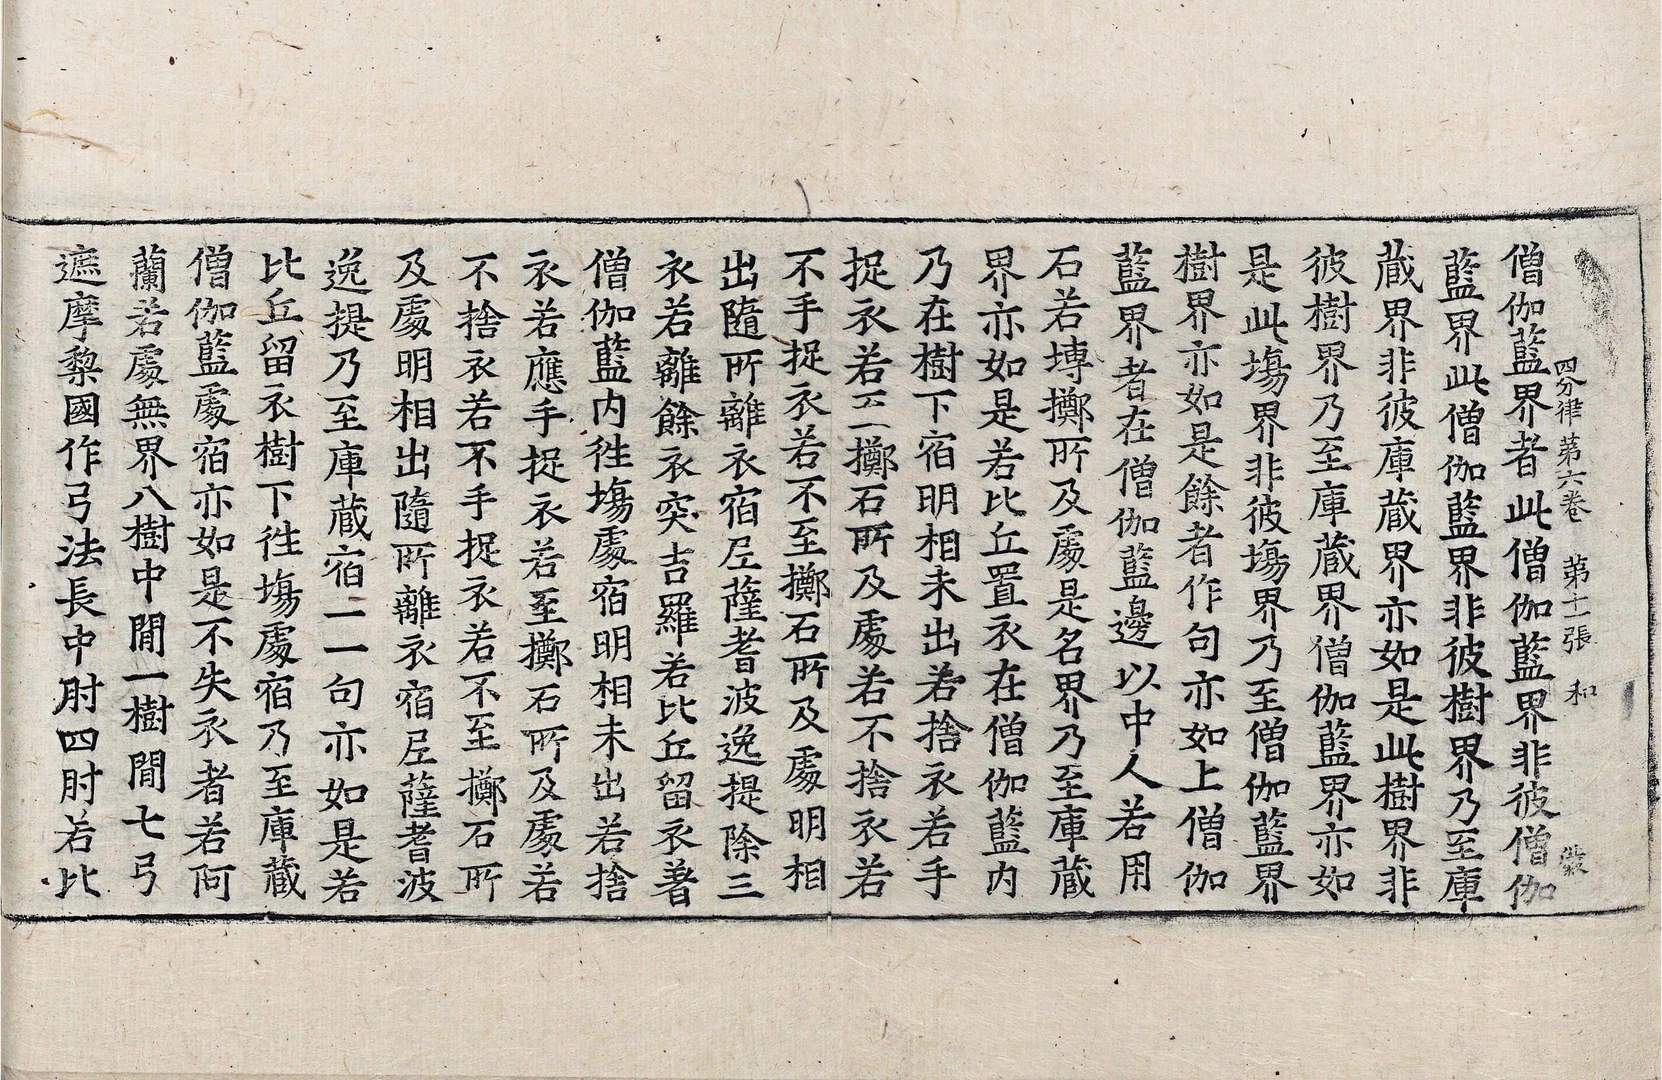 四分律第六卷 第十一張 和
僧伽藍界者此僧伽藍界非彼僧伽
藍界此僧伽藍界非彼樹界乃至庫
蔵界非彼庫蔵界亦如是此樹界非
彼樹界乃至庫蔵界僧伽藍界亦如
是此塲界非彼塲界乃至僧伽藍界
樹界亦如是餘者作句亦如上僧伽
藍界者在僧伽藍邊以中人若用
石若塼擲所及處是名界乃至庫蔵
界亦如是若比丘置衣在僧伽藍内
乃在樹下宿明相未出若捨衣若手
捉衣若至擲石所及處若不捨衣若
不手捉衣若不至擲石所及處明相
出隨所離衣宿尼薩耆波逸提除三
衣若離餘衣突吉羅若比丘留衣著
僧伽藍内徃塲處宿明相未出若捨
衣若應手捉衣若至擲石所及處若
不捨衣若不手捉衣若不至擲石所
及處明相出隨所離衣宿尼薩耆波
逸提乃至庫蔵宿一一句亦如是若
比丘留衣樹下徃塲處宿乃至庫蔵
僧伽藍處宿亦如是不失衣者若阿
蘭若處無界八樹中閒一樹閒七弓
遮摩棃國作弓法長中肘四肘若比